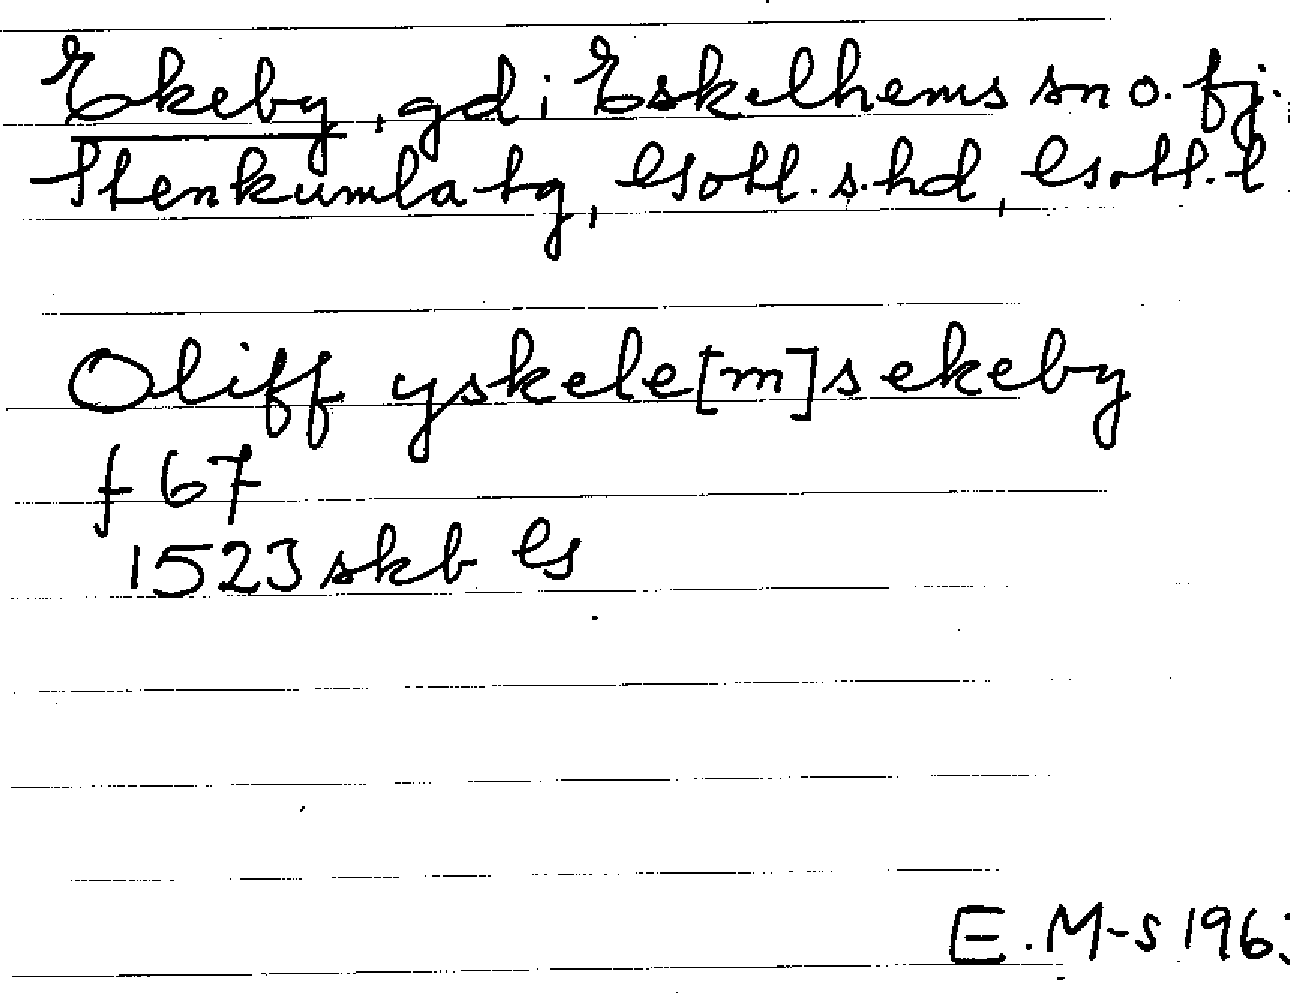 Ekeby, gd i Eskelhems sn o. fj.
Stenkumla tg, Gotl. s. hd, Gotl. l
Oliff yskele[m]s ekeby
f 67
1523 skb G
E. M-s 196